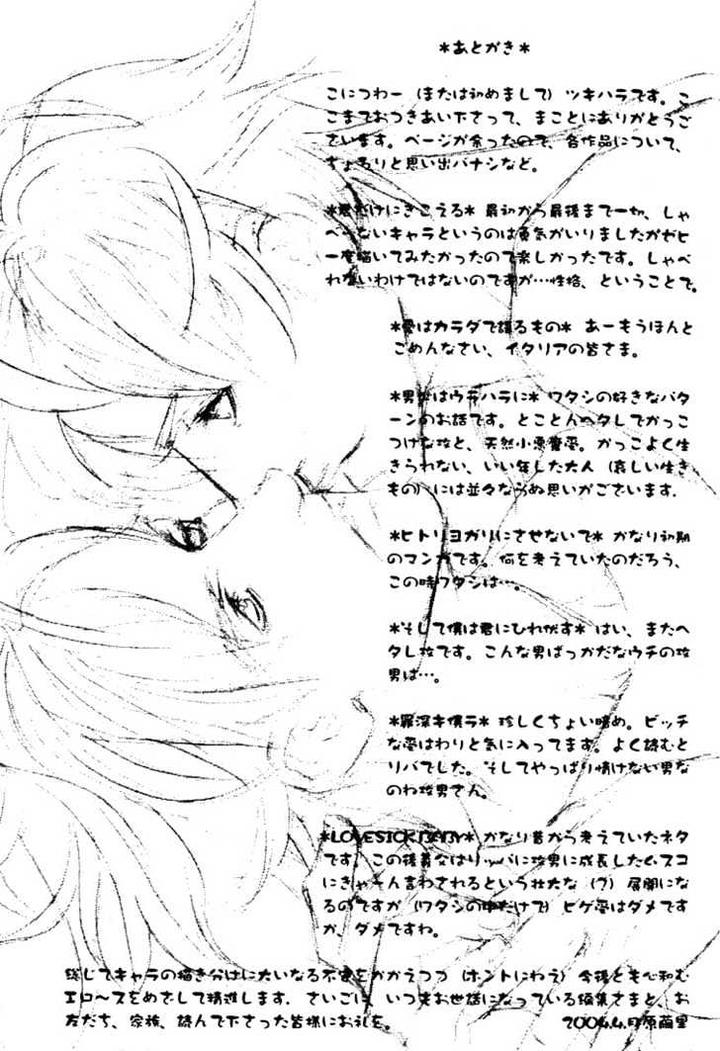 *あとがき*
こにつわー（または初めまして）ツキハラです。こ
こまでおつきあい下さって、まことにありがとうご
ざいます。ページが余ったので、各作品について、
ちょろりと思い出バナシなど。
*君だけにきこえる* 最初から最後まで一切、しゃ
べらないキャラというのは勇気がいりましたがゼヒ
一度描いてみたかったので楽しかったです。しゃべ
れないわけではないのですが…性格、ということで。
*愛はカラダで語るもの* あーもうほんと
ごめんなさい、イタリアの皆さま。
*男はウラハラに* ワタシの好きなパタ
ーンのお話です。とことんヘタレでかっこ
つけな攻と、天然小悪魔受。かっこよく生
きられない、いい年した大人（哀しい生き
もの）には並々ならぬ思いがございます。
*ヒトリヨガリにさせないで* かなり初期
のマンガです。何を考えていたのだろう、
この時ワタシは…。
*そして僕は君にひれ伏す* はい、またヘ
タレ攻です。こんな男ばっかだなウチの攻
男は…。
*罪深キ僕ラ* 珍しくちょい暗め。ビッチ
な受はわりと気に入ってます。よく読むと
リバでした。そしてやっぱり情けない男な
のね攻男さん。
*LOVESICK BABY* かなり昔から考えていたネタ
です。この後義父はリッパに攻男に成長したムスコ
にきゃそん言わされるという壮大な（？）展開にな
るのですが（ワタシの中だけで）ヒゲ受はダメです
か、ダメですね。
総じてキャラの描き分けに大いなる不安をかかえつつ（ホントにねえ）今後とも心和む
エロ～スをめざして精進します。さいごに、いつもお世話になっている編集さまと、お
友だち、家族、読んで下さった皆様にお礼を。 2004.4.月原繭里